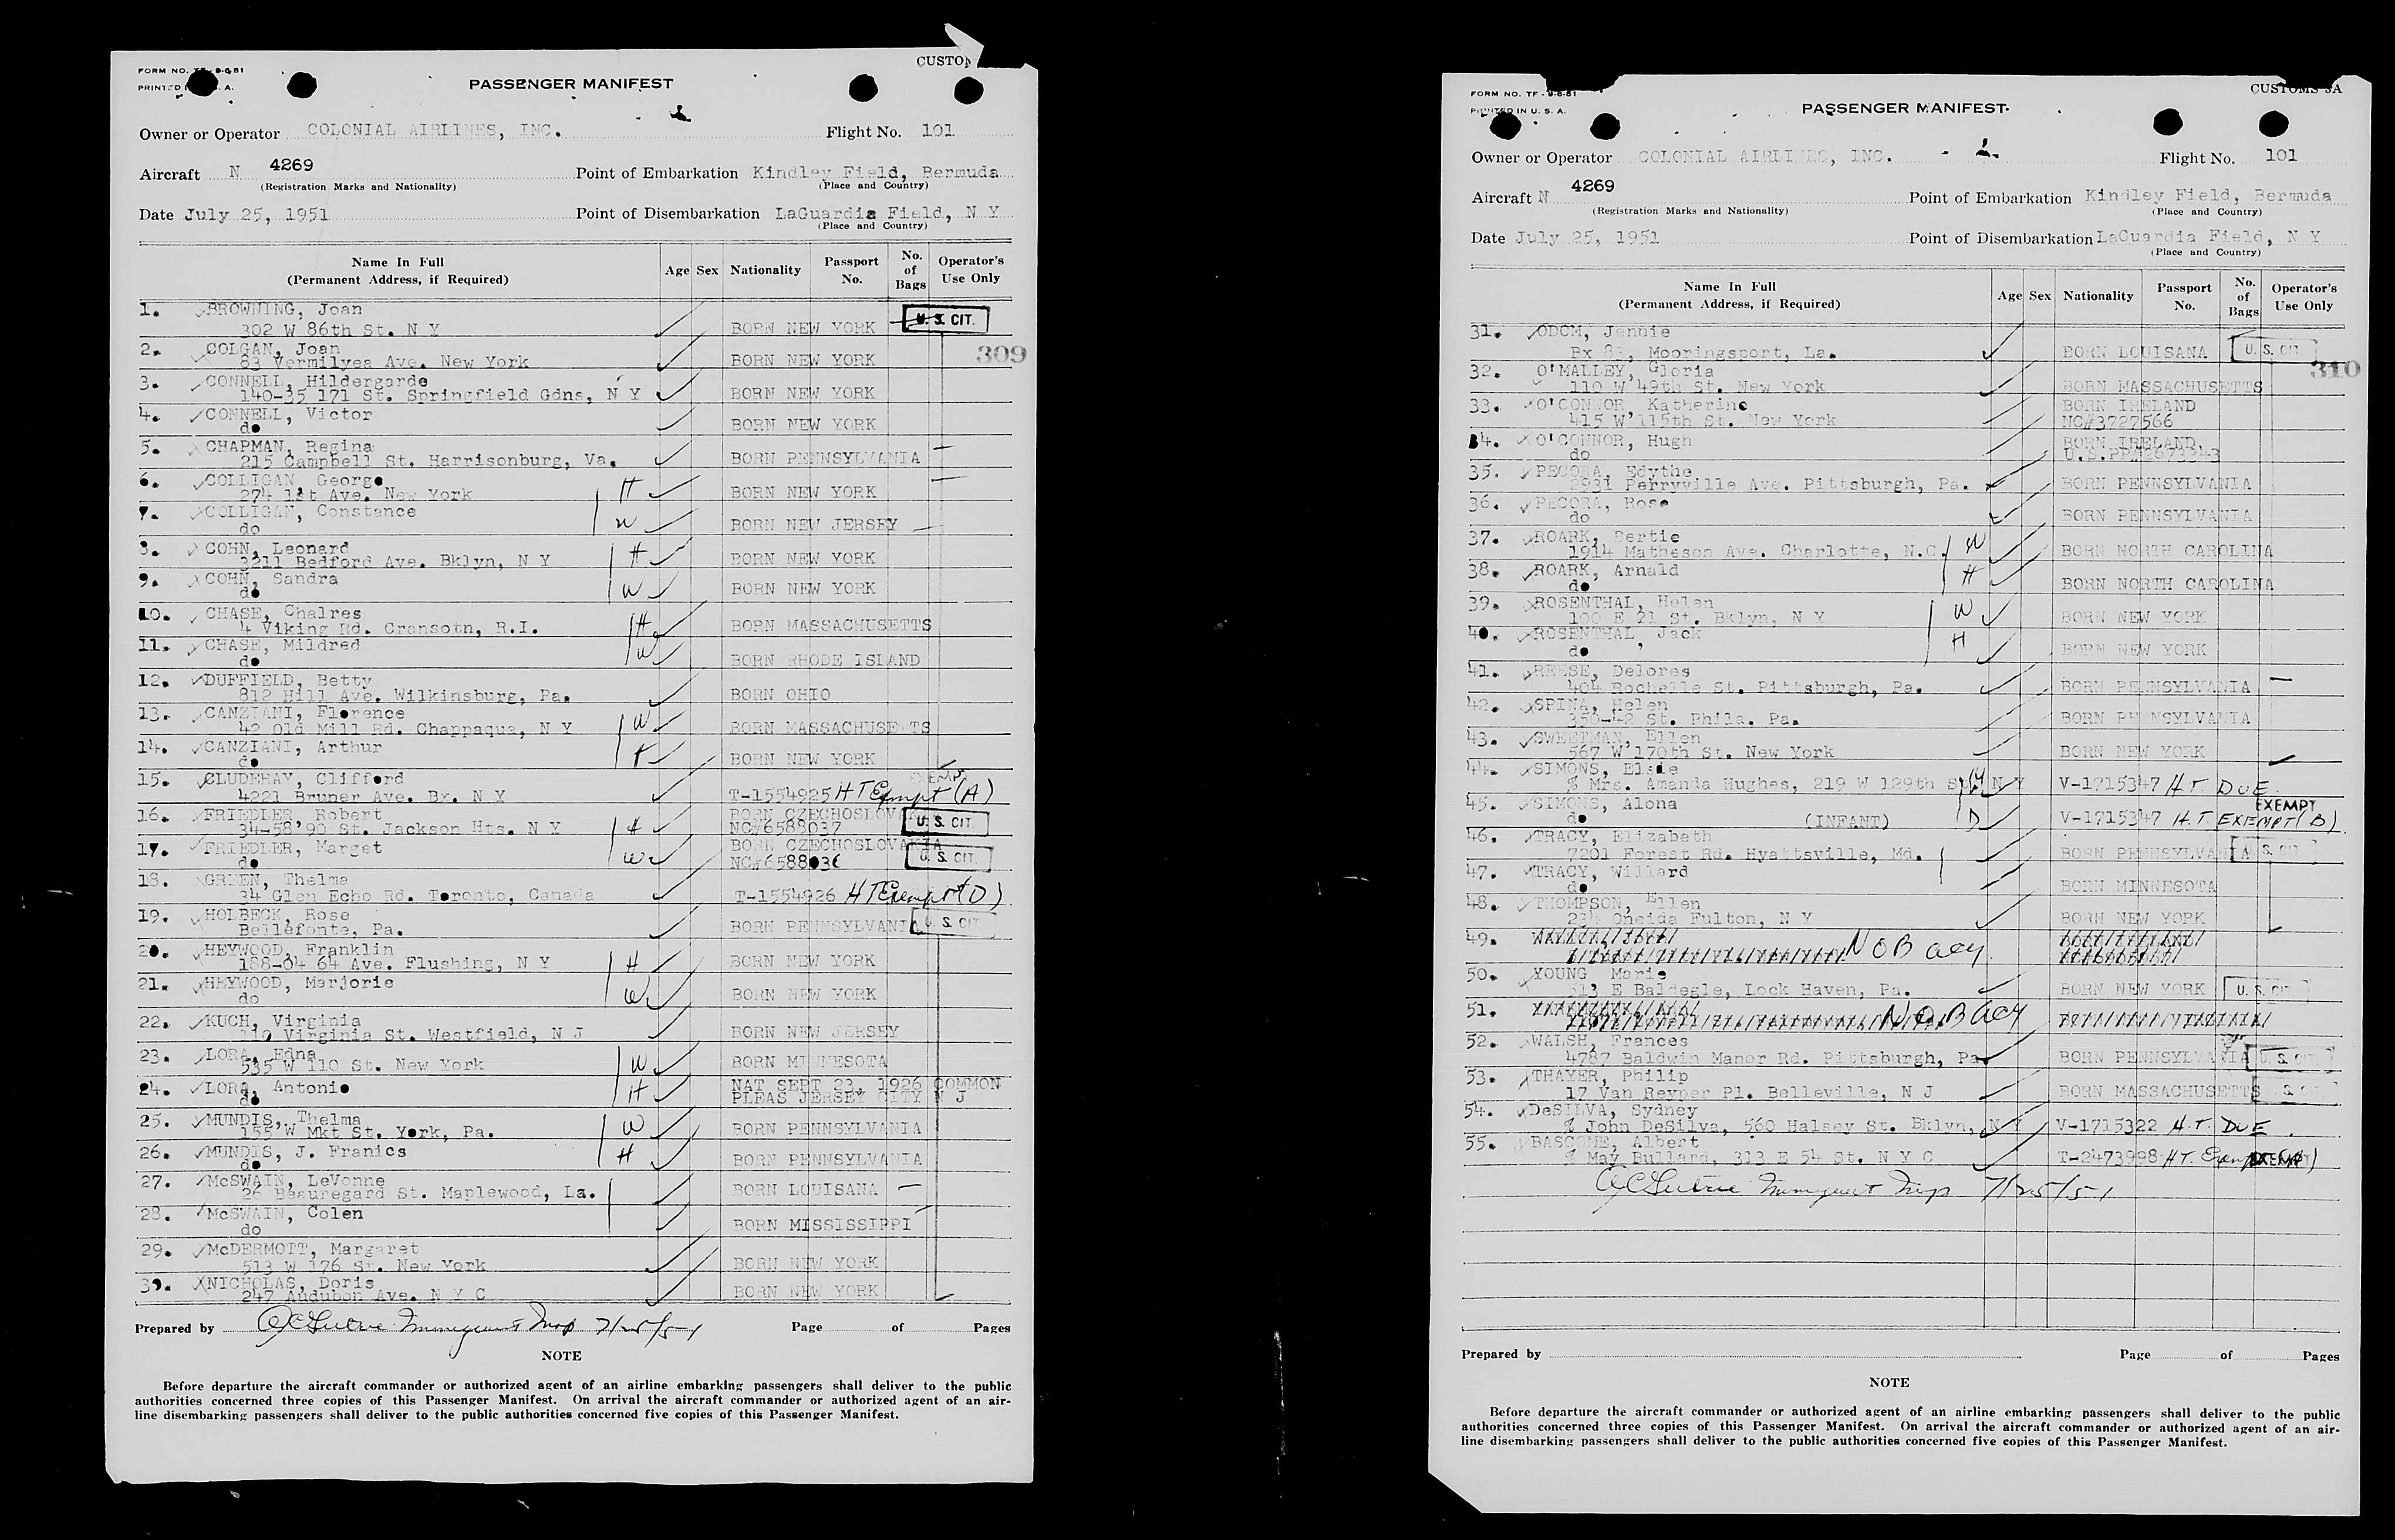 CUSTO
FORM NO. TF - 9-6-51
PRINTED I . A.
PASSENGER MANIFEST
Owner or Operator COLONIAL AIRLINES, INC. Flight No. 101
Aircraft N 4269 Point of Embarkation Kindley Field, Bermuda
(Registration Marks and Nationality) (Place and Country)
Date July 25, 1951 Point of Disembarkation LaGuardia Field, N Y
(Place and Country)
Name In Full (Permanent Address, if Required) Age Sex Nationality Passport No. No. of Bags Operator's Use Only
1. BROWNING, Joan
302 W 86th St. N Y BORN NEW YORK U. S. CIT.
309
2. COLGAN, Joan
83 Vermilyea Ave. New York BORN NEW YORK
3. CONNELL, Hildergarde
140-35 171 St. Springfield Gdns, N Y BORN NEW YORK
4. CONNELL, Victor
do BORN NEW YORK
5. CHAPMAN, Regina
215 Campbell St. Harrisonburg, Va. BORN PENNSYLVANIA
6. COLLIGAN, George
274 1st Ave. New York H BORN NEW YORK
7. COLLIGAN, Constance
do W BORN NEW JERSEY
8. COHN, Leonard
3211 Bedford Ave. Bklyn, N Y H BORN NEW YORK
9. COHN, Sandra
do W BORN NEW YORK
10. CHASE, Chalres
4 Viking Rd. Cransotn, R.I. H BORN MASSACHUSETTS
11. CHASE, Mildred
do W BORN RHODE ISLAND
12. DUFFIELD, Betty
812 Hill Ave. Wilkinsburg, Pa. BORN OHIO
13. CANZIANI, Florence
42 Old Mill Rd. Chappaqua, N Y W BORN MASSACHUSETTS
14. CANZIANI, Arthur
do BORN NEW YORK
15. CLUDERAY, Clifford
4221 Bruner Ave. Bx. N Y T-1554925 H T Exempt (A)
16. FRIEDLER, Robert BORN CZECHOSLOVAKIA
34-58 90 St. Jackson Hts. N Y H NC#6588037 U. S. CIT.
17. FRIEDLER, Marget BORN CZECHOSLOVAKIA
do W NC#6588036 U. S. CIT.
18. GREEN, Thelma
34 Glen Echo Rd. Toronto, Canada T-1554926 H T Exempt (D)
19. HOLBECK, Rose
Bellefonte, Pa. BORN PENNSYLVANIA U. S. CIT.
20. HEYWOOD, Franklin
188-04 64 Ave. Flushing, N Y H BORN NEW YORK
21. HEYWOOD, Marjorie
do W BORN NEW YORK
22. KUCH, Virginia
110 Virginia St. Westfield, N J BORN NEW JERSEY
23. LORA, Edna
535 W 110 St. New York W BORN MINNESOTA
24. LORA, Antonio NAT SEPT 23, 1926 COMMON
do H PLEAS JERSEY CITY N J
25. MUNDIS, Thelma
155 W Mkt St. York, Pa. W BORN PENNSYLVANIA
26. MUNDIS, J. Franics
do H BORN PENNSYLVANIA
27. McSWAIN, LeVonne
26 Beauregard St. Maplewood, La. BORN LOUISANA
28. McSWAIN, Colen
do BORN MISSISSIPPI
29. McDERMOTT, Margaret
513 W 176 St. New York BORN NEW YORK
30. NICHOLAS, Doris
247 Audubon Ave. N Y C BORN NEW YORK
Prepared by 7/25/51 Page of Pages
NOTE
Before departure the aircraft commander or authorized agent of an airline embarking passengers shall deliver to the public
authorities concerned three copies of this Passenger Manifest. On arrival the aircraft commander or authorized agent of an air-
line disembarking passengers shall deliver to the public authorities concerned five copies of this Passenger Manifest.
CUSTOMS 3A
FORM NO. TF - 9-6-51
PRINTED IN U. S. A.
PASSENGER MANIFEST
Owner or Operator COLONIAL AIRLINES, INC. Flight No. 101
Aircraft N 4269 Point of Embarkation Kindley Field, Bermuda
(Registration Marks and Nationality) (Place and Country)
Date July 25, 1951 Point of Disembarkation LaGuardia Field, N Y
(Place and Country)
Name In Full (Permanent Address, if Required) Age Sex Nationality Passport No. No. of Bags Operator's Use Only
31. ODOM, Jennie
Bx 83, Mooringsport, La. BORN LOUISANA U. S. CIT
310
32. O'MALLEY, Gloria
110 W 49th St. New York BORN MASSACHUSETTS
33. O'CONNOR, Katherine BORN IRELAND
415 W 115th St. New York NC#3727566
34. O'CONNOR, Hugh BORN IRELAND,
do
35. PECORA, Edythe
2931 Perryville Ave. Pittsburgh, Pa. BORN PENNSYLVANIA
36. PECORA, Rose
do BORN PENNSYLVANIA
37. ROARK, Bertie
1914 Matheson Ave. Charlotte, N.C. W BORN NORTH CAROLINA
38. ROARK, Arnald
do H BORN NORTH CAROLINA
39. ROSENTHAL, Helen
100 E 21 St. Bklyn, N Y W BORN NEW YORK
40. ROSENTHAL, Jack
do H BORN NEW YORK
41. REESE, Delores
404 Rochelle St. Pittsburgh, Pa. BORN PENNSYLVANIA
42. SPINA, Helen
350-42 St. Phila. Pa. BORN PENNSYLVANIA
43. SWEETMAN, Ellen
567 W 170th St. New York BORN NEW YORK
44. SIMONS, Elsie
% Mrs. Amanda Hughes, 219 W 129th St. N Y V-1715347 H T. DUE
45. SIMONS, Alona EXEMPT
do (INFANT) D V-1715347 H.T. EXEMPT (B)
46. TRACY, Elizabeth
7201 Forest Rd. Hyattsville, Md. BORN PENNSYLVANIA U. S. CIT
47. TRACY, Willard
do BORN MINNESOTA
48. THOMPSON, Ellen
234 Oneida Fulton, N Y BORN NEW YORK
49. NOB acy
50. YOUNG Marie
513 E Baldegle, Lock Haven, Pa. BORN NEW YORK U. S. CIT
51. NOB acy
52. WALSH, Frances
4787 Baldwin Manor Rd. Pittsburgh, Pa. BORN PENNSYLVANIA U. S. CIT
53. THAYER, Philip
17 Van Reyper Pl. Belleville, N J BORN MASSACHUSETTS S.
54. DeSILVA, Sydney
% John DeSilva, 560 Halsey St. Bklyn, N Y V-1715322 H.T. DUE
55. BASCOME, Albert
% May Bullard, 313 E 54 St. N Y C T-2473998 H.T. EXEMPT
7/25/51
Prepared by Page of Pages
NOTE
Before departure the aircraft commander or authorized agent of an airline embarking passengers shall deliver to the public
authorities concerned three copies of this Passenger Manifest. On arrival the aircraft commander or authorized agent of an air-
line disembarking passengers shall deliver to the public authorities concerned five copies of this Passenger Manifest.